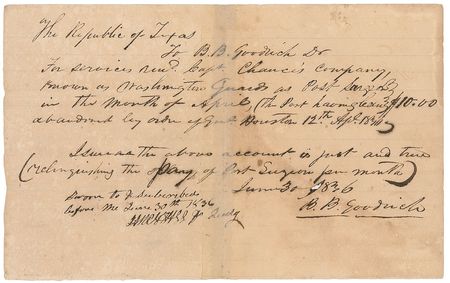 The Republic of Texas
To B. B. Goodrich Dr
For services rend. Capt. Chance's Company,
known as Washington Guards as Post Surgeon
in the Month of April (the Post having been $10.00
abandoned by order of Genl Houston 12th Apl 1836
I swear the above account is just and true
(relinquishing the pay of Post Surgeon per month)
June 30 1836
Sworn to & Subscribed
before me June 30th 1836
B. B. Goodrich
Judge